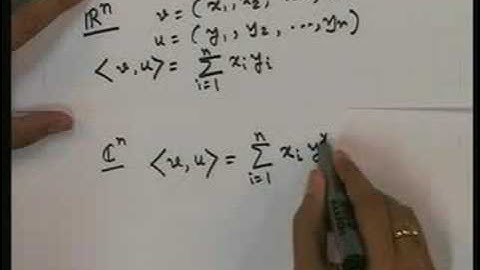 ℝⁿ v = (x₁, x₂, ...,
u = (y₁, y₂, ..., yₙ)
⟨v, u⟩ = ∑ᵢ₌₁ⁿ xᵢ yᵢ
ℂⁿ ⟨v, u⟩ = ∑ᵢ₌₁ⁿ xᵢ y